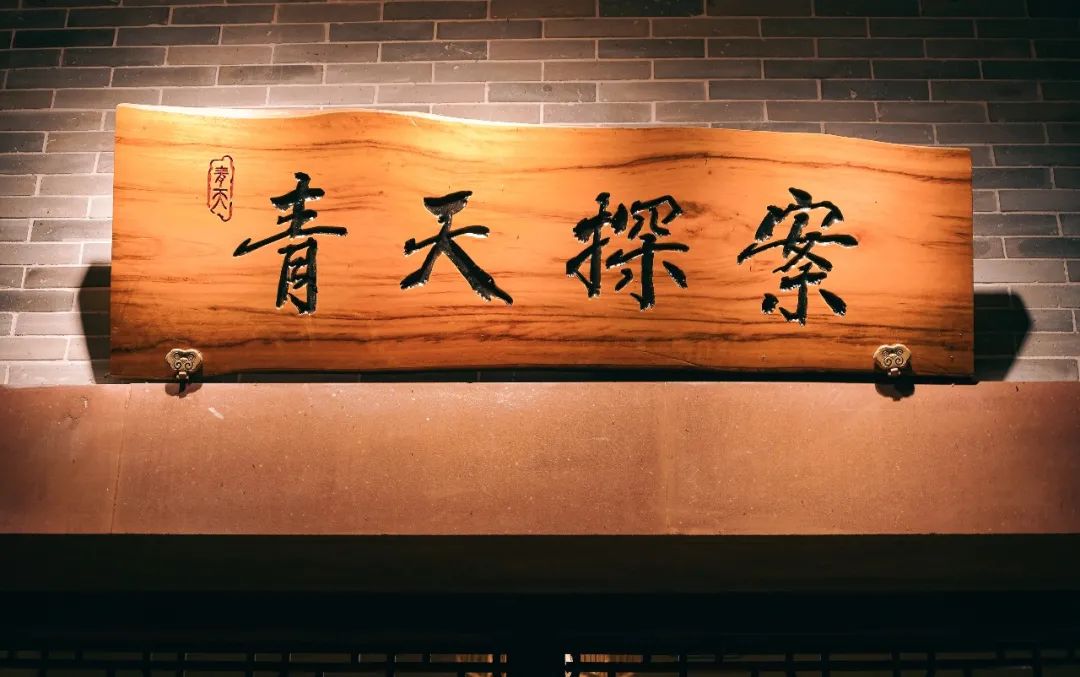 青天
青天探案